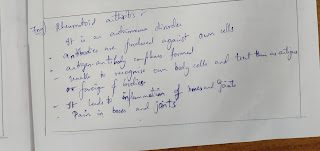 Rheumatoid arthritis :-
It is an autoimmune disorder
- antibodies are produced against own cells
- antigen-antibody complexes formed
- unable to recognise own body cells and treat them as antigens
or foreign bodies.
- It leads to inflammation of bones and joints
- Pain in bones and joints